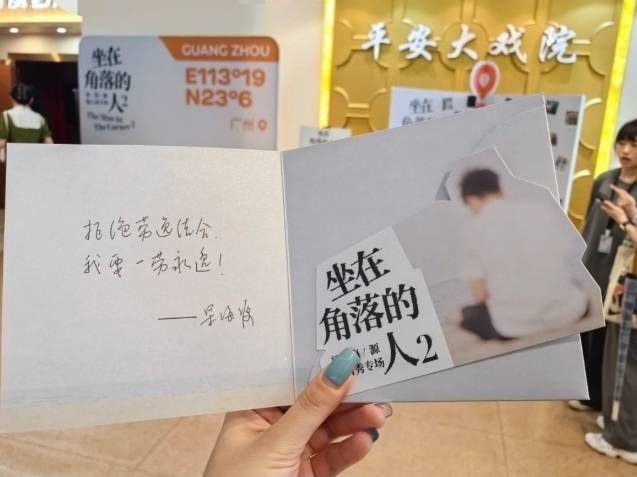 坐在
角落的
人2
The Man In
The Corner 2
GUANG ZHOU
E113°19
N23°6
广州
平安大戏院
坐在
角落的
拒绝劳逸结合.
我要一劳永逸!
坐在
角落的
人2
源
秀专场